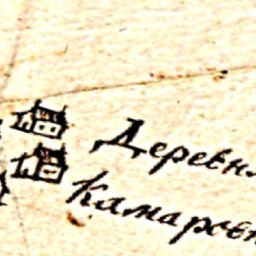 Деревн
Камаровк